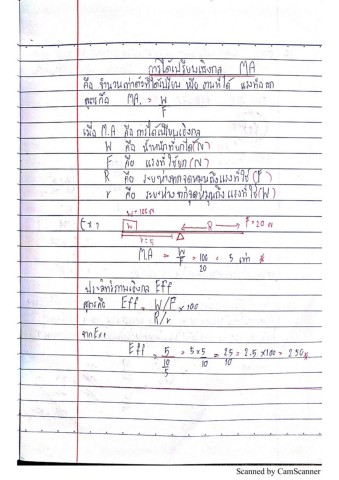 การได้เปรียบเชิงกล MA
คือ จำนวนเท่าตัวที่ได้เปรียบ เมื่อ งานที่ได้
สูตรคือ MA. = W
F
เมื่อ M.A คือ การได้เปรียบเชิงกล
W คือ น้ำหนักที่ยกได้(N)
F คือ แรงที่ใช้ยก (N)
R คือ ระยะห่างจากจุดหมุนถึงแรงที่ใช้ (F)
r คือ ระยะห่างจากจุดหมุนถึง แรงที่ได้(W)
W=100N
Ex1 W R F=20 N
r=5
M.A = W = 100 = 5 เท่า
F 20
ประสิทธิภาพเชิงกล Eff
สูตรคือ Eff = W/F x100
R/r
จากEx1
Eff = 5 = 5x5 = 25 = 2.5 x100 = 250
10 10 10
5
Scanned by CamScanner